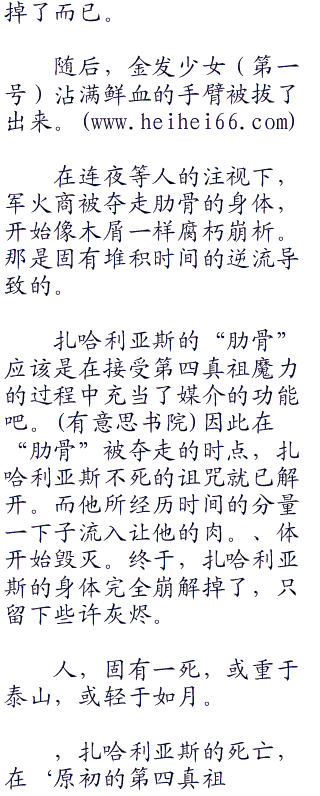 掉了而已。
随后，金发少女（第一
号）沾满鲜血的手臂被拔了
出来。(www.heihei66.com)
在连夜等人的注视下，
军火商被夺走肋骨的身体，
开始像木屑一样腐朽崩析。
那是固有堆积时间的逆流导
致的。
扎哈利亚斯的“肋骨”
应该是在接受第四真祖魔力
的过程中充当了媒介的功能
吧。(有意思书院)因此在
“肋骨”被夺走的时点，扎
哈利亚斯不死的诅咒就已解
开。而他所经历时间的分量
一下子流入让他的肉。、体
开始毁灭。终于，扎哈利亚
斯的身体完全崩解掉了，只
留下些许灰烬。
人，固有一死，或重于
泰山，或轻于如月。
，扎哈利亚斯的死亡，
在‘原初的第四真祖